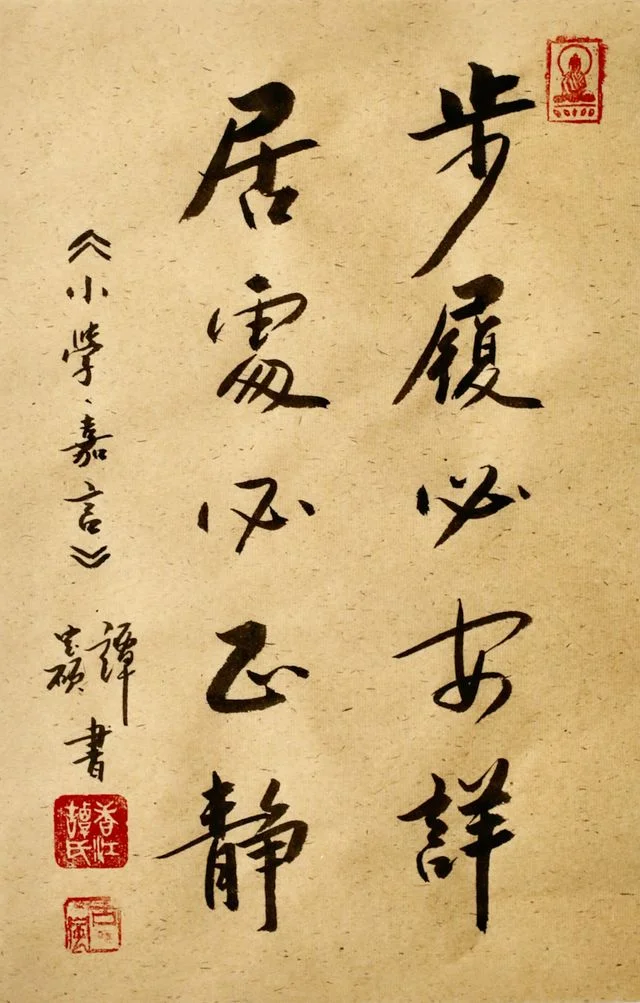 步履必安詳
居處必正靜
《小學·嘉言》
譚
書
香江
譚氏